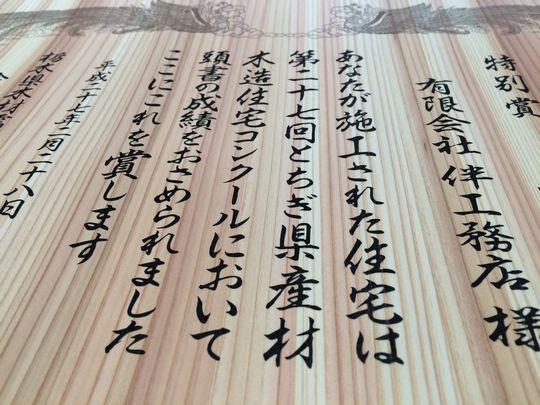 特別賞
有限会社 伴工務店 様
あなたが施工された住宅は
第二十七回とちぎ県産材
木造住宅コンクールにおいて
頭書の成績をおさめられました
ここにこれを賞します
平成二十七年二月二十八日
栃木県木材